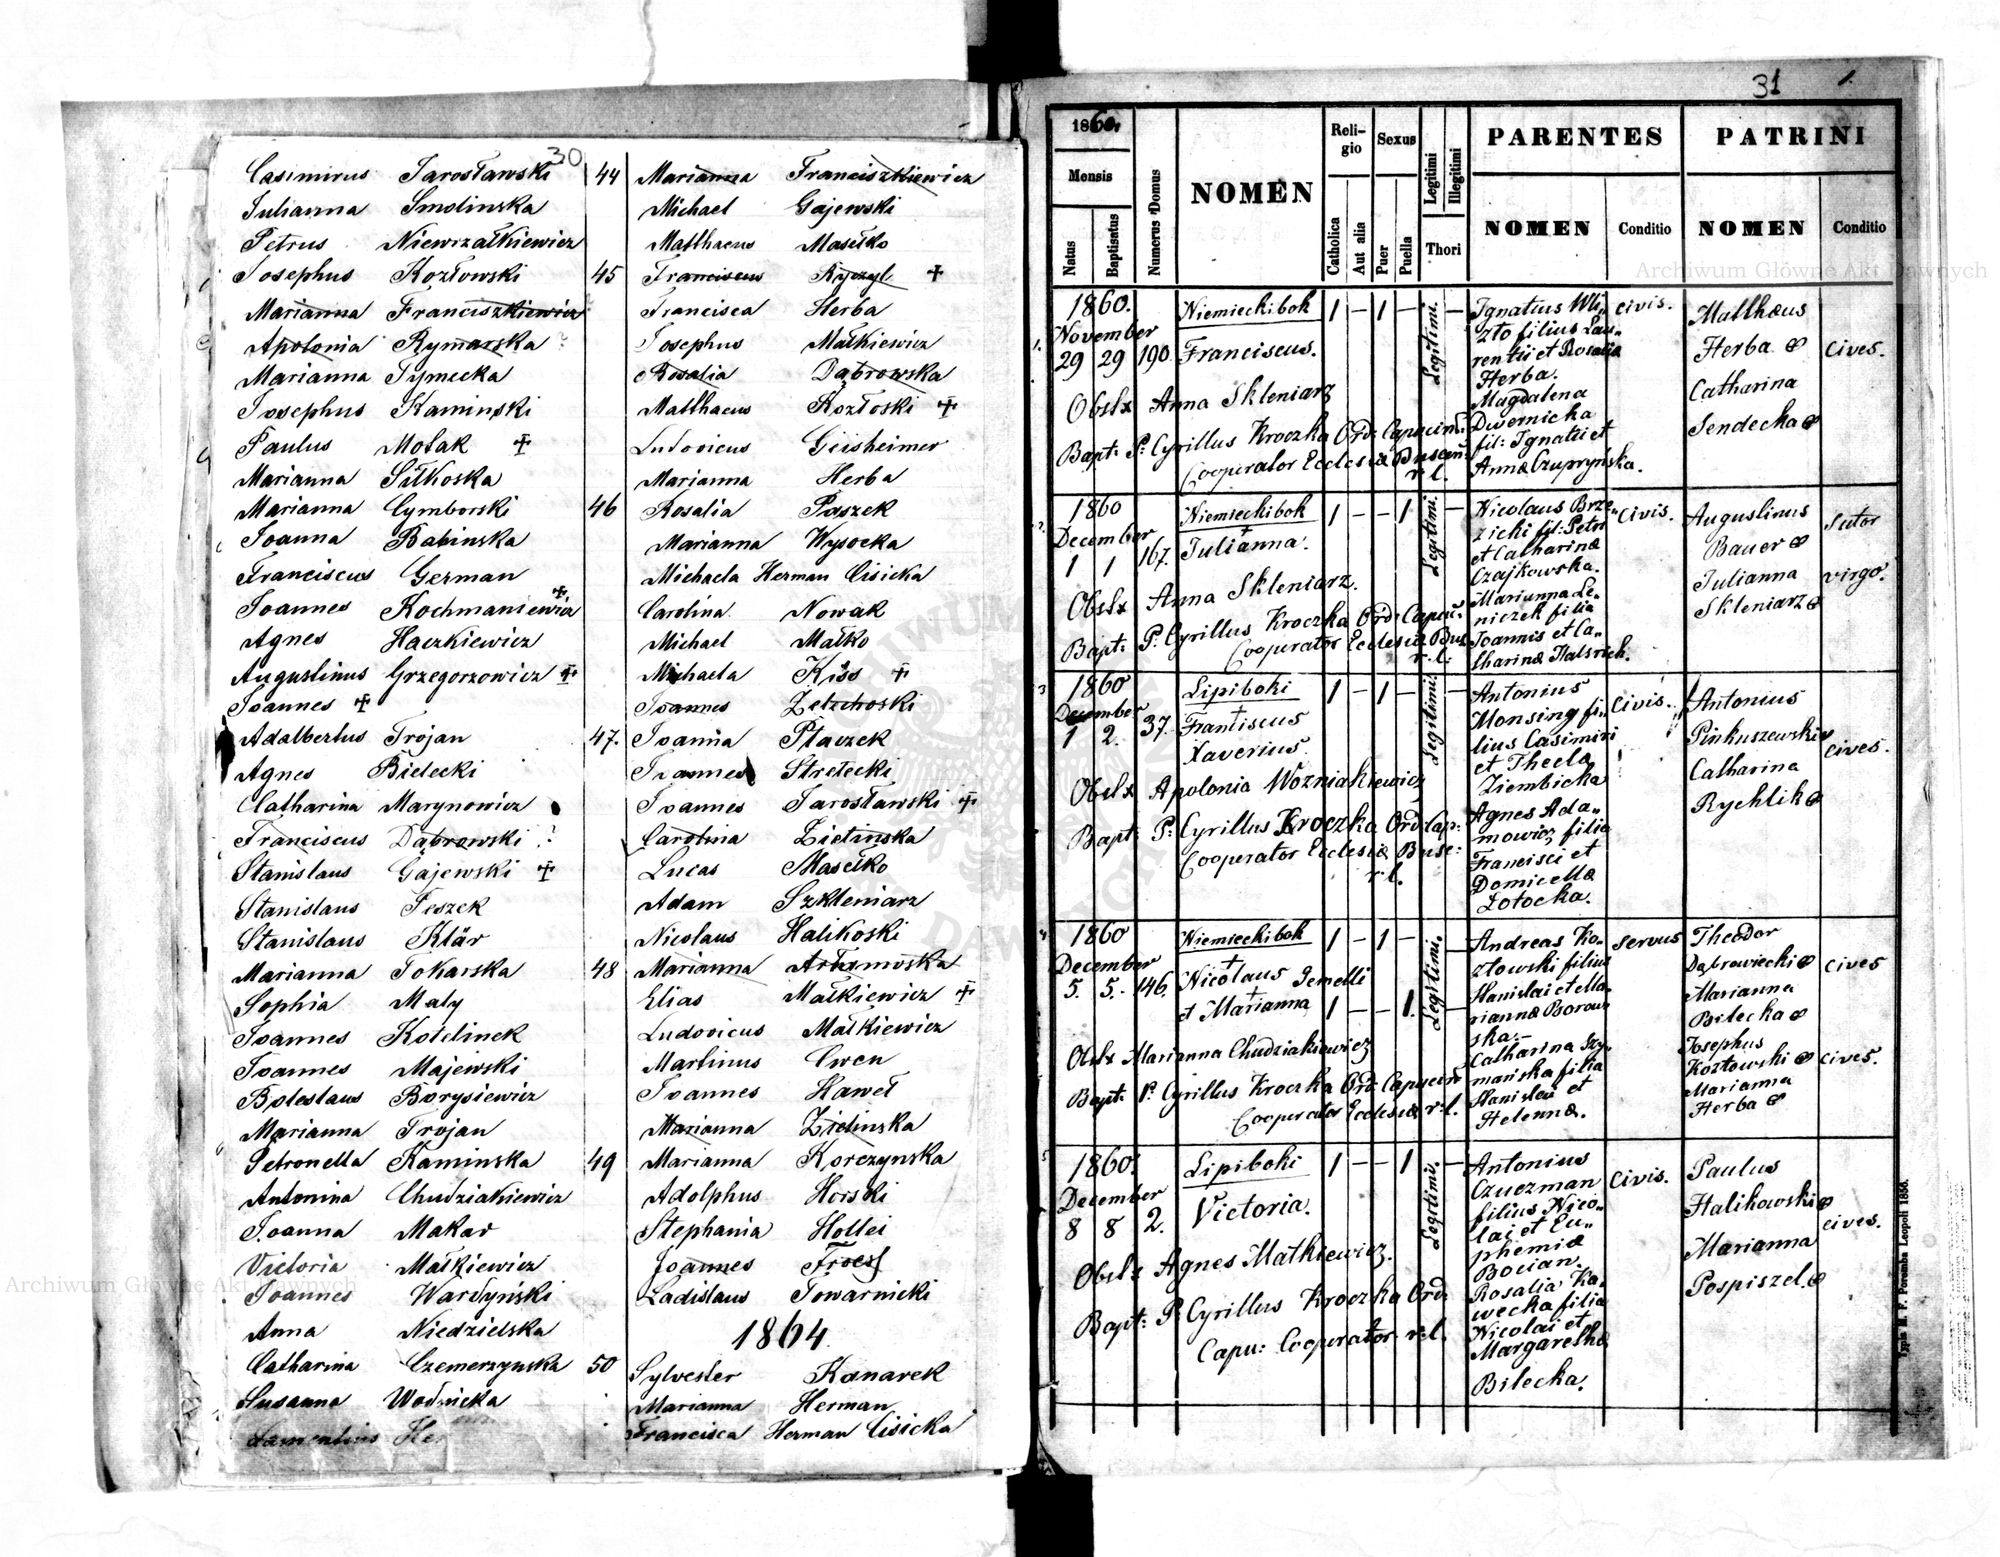 30
Casimirus Jarosławski
Julianna Smolinska
Petrus Niewrzałkiewicz
Josephus Kozłowski
Marianna Franciszkiewicz
Apolonia Rymarska ?
Marianna Tymecka
Josephus Kaminski
Paulus Motak ✝
Marianna Sitkoska
Marianna Cymborski
Joanna Babinska
Franciscus German
Joannes Kochmaniewicz ✝
Agnes Haczkiewicz
Augustinus Grzegorzowicz ✝
Joannes ✝
Adalbertus Trojan
Agnes Bielecki
Catharina Marynowicz
Franciscus Dąbrowski ?
Stanislaus Gajewski ✝
Stanislaus Peszek
Stanislaus Klär
Marianna Tokarska
Sophia Maly
Joannes Kotelinek
Joannes Majewski
Boleslaus Borysiewicz
Marianna Trojan
Petronella Kaminska
Antonina Chudziakiewicz
Joanna Makar
Victoria Małkiewicz
Joannes Wardyński
Anna Niedzielska
Catharina Czemerzynska
Susanna Wodnicka
44 Marianna Franciszkiewicz
Michael Gajewski
Matthaeus Masełko
45 Franciscus Ryczyl ✝
Francisca Herba
Josephus Małkiewicz
Rosalia Dąbrowska
Matthaeus Kozłoski ✝
Ludovicus Geisheimer
Marianna Herba
46 Rosalia Paszek
Marianna Wysocka
Michaela Herman Cisicka
Carolina Nowak
Michael Małko
Michaela Kiss ✝
Joannes Zelechoski
47. Joanna Ptaczek
Joannes Strełecki
Joannes Jarosławski ✝
Carolina Zielinska
Lucas Masełko
Adam Szkleniarz
Nicolaus Halikoski
48 Marianna Artymoska
Elias Małkiewicz ✝
Ludovicus Małkiewicz
Martinus Cwen
Joannes Haweł
Marianna Zielinska
49 Marianna Korczynska
Adolphus Horski
Stephania Hollei
Joannes Froess
Ladislaus Towarnicki
1864
50 Sylvester Kanarek
Marianna Herman
Francisca Herman Cisicka
31 1.
1860.
Mensis
Natus
Baptisatus
Numerus Domus
NOMEN
Religio
Catholica
Aut alia
Sexus
Puer
Puella
Legitimi
Illegitimi
Thori
PARENTES
NOMEN
Conditio
PATRINI
NOMEN
Conditio
1.
1860.
November
29 29 190
Niemieckibok
Franciscus.
1 – 1 –
Legitimi.
Ignatius Wli-
zto filius Lau-
rentii et Rosalia
Herba.
Magdalena
Dwornicka
fil: Ignatii et
Annæ Czuprynska.
civis.
Matthæus
Herba &
Catharina
Sendecka &
cives.
Obstx Anna Skleniarz
Bapt: P: Cyrillus Kroczka Ord: Capucin:
Cooperator Ecclesiæ Buscen:
r. l.
2.
1860
December
1 1 167.
Niemieckibok
✝
Julianna.
1 – – 1
Legitimi.
Nicolaus Brze-
zicki fil: Petri
et Catharinæ
Czajkowska.
Marianna Le-
niczek filia
Joannis et Ca-
tharinæ Halsrich.
Civis.
Augustinus
Bauer &
Julianna
Skleniarz &
Sutor
virgo.
Obstx Anna Skleniarz.
Bapt: P: Cyrillus Kroczka Ord: Capuc:
Cooperator Ecclesiæ Bus
r. l.:
3
1860
December
1 2. 37.
Lipiboki
✝
Franciscus
Xaverius.
1 – 1 –
Legitimi.
Antonius
Monsing fi-
lius Casimiri
et Thecla
Ziembicka
Agnes Ada-
mowicz filia
Francisci et
Domicellæ
Zotocka.
Civis.
Antonius
Pinkuszewski &
Catharina
Rychlik &
cives.
Obstx Apolonia Wozniakiewicz
Bapt: P: Cyrillus Kroczka Ord: Cap:
Cooperator Ecclesiæ Busc:
r. l.
4
1860
December
5. 5. 146.
Niemieckibok
✝
Nicolaus Gemelli
et Marianna
1 – 1 –
1 – – 1.
Legitimi.
Andreas Ko-
złowski filius
Stanislai et Ma-
riannæ Borow-
ska.–
Catharina Szy-
mańska filia
Stanislai et
Helennæ.
servus
Theodor
Dąbrowiecki &
Marianna
Bilecka &
Josephus
Kozłowski &
Marianna
Herba &
cives
cives.
Obstx Marianna Chudziakiewicz
Bapt: P: Cyrillus Kroczka Ord: Capucin:
Cooperator Ecclesiæ r. l.
5
1860.
December
8 8 2.
Lipiboki
Victoria.
1 – – 1 –
Legitimi.
Antonius
Czuczman
filius Nico-
lai et Eu-
phemiæ
Bocian.
Rosalia Ka-
wecka filia
Nicolai et
Margarethæ
Bilecka.
Civis.
Paulus
Halikowski &
Marianna
Pospiszel &
cives.
Obstx Agnes Matkiewicz.
Bapt: P: Cyrillus Kroczka Ord:
Capu: Cooperator r. l.
Typis H. F. Poremba Leopoli 1856.
Archiwum Główne Akt Dawnych
Archiwum Główne Akt Dawnych